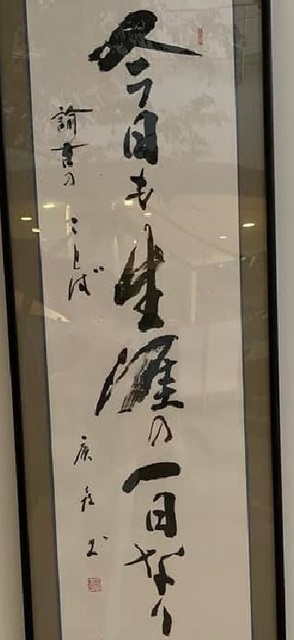 今日も生涯の一日なり
諭吉のことば